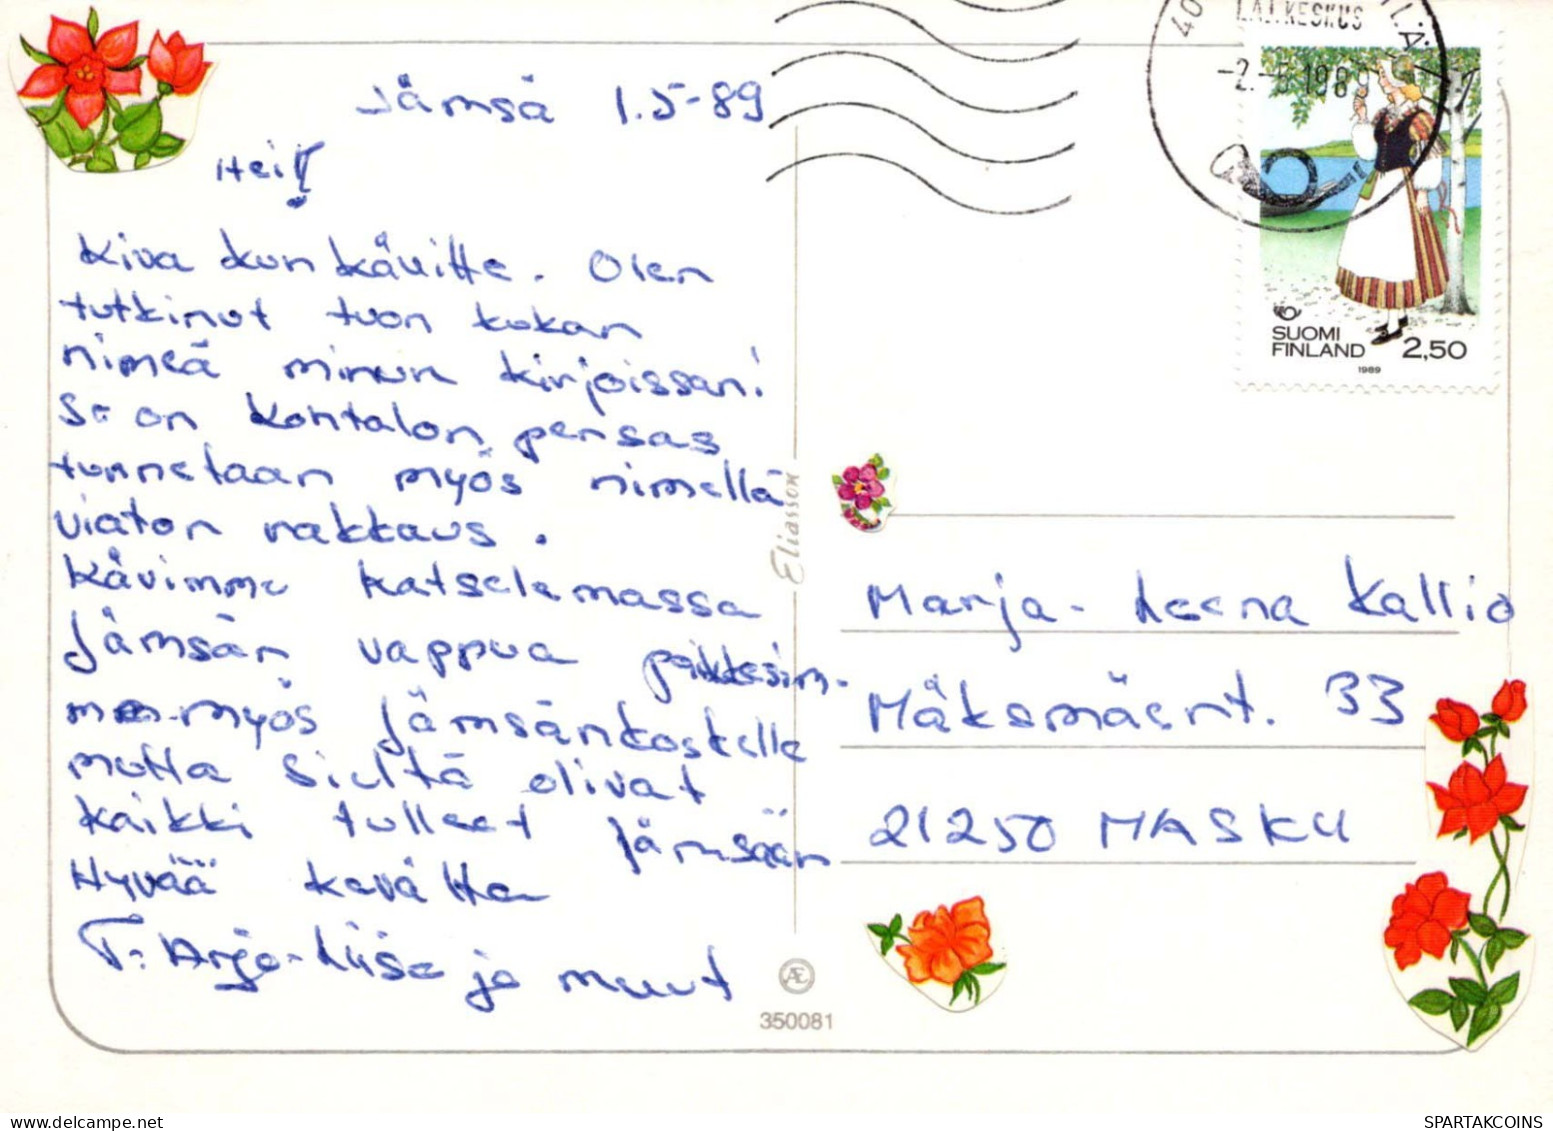 Jämsä 1.5-89
Hei!
Kiva kun kävitte. Olen
tutkinut tuon kukan
nimeä minun kirjoissani
Se on kohtalon pensas
tunnetaan myös nimellä
viaton rakkaus.
Kävimme katselemassa
Jämsän vappua poikkesim-
me myös Jämsänkoskella
mutta sieltä olivat
kaikki tulleet Jämsään
Hyvää kevättä
T: Arja-Liisa ja muut
Eliasson
Æ
350081
40
LAJ.KESKUS
-2.-5.1989
SUOMI
FINLAND 2,50
1989
Marja-Leena Kallio
Mäksmäent. 33
21250 MASKU
SPARTAKCOINS